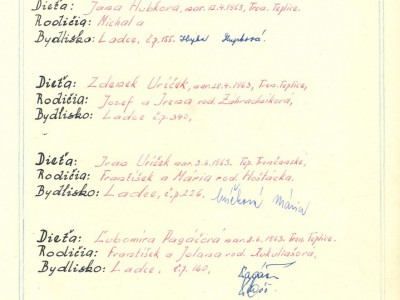 Dieťa: Jana Hubková, nar. 12.4.1963, Tren. Teplice.
Rodičia: Michal a
Bydlisko: Ladce, č.p. 155.
Dieťa: Zdenek Uríček, nar. 28.4.1963, Tren. Teplice,
Rodičia: Jozef a Irena rod. Zahradníkova,
Bydlisko: Ladce č.p. 340,
Dieťa: Ivan Uríček nar. 3.6.1963. Tep. Trenčianske.
Rodičia: František a Mária rod. Hošťácka.
Bydlisko: Ladce, č.p. 226, Uríčková Mária
Dieťa: Ľubomíra Pagáčová nar. 2.6.1963. Tren. Teplice.
Rodičia: František a Jolana rod. Kukuliašova,
Bydlisko: Ladce, č.p. 160, Pagáč